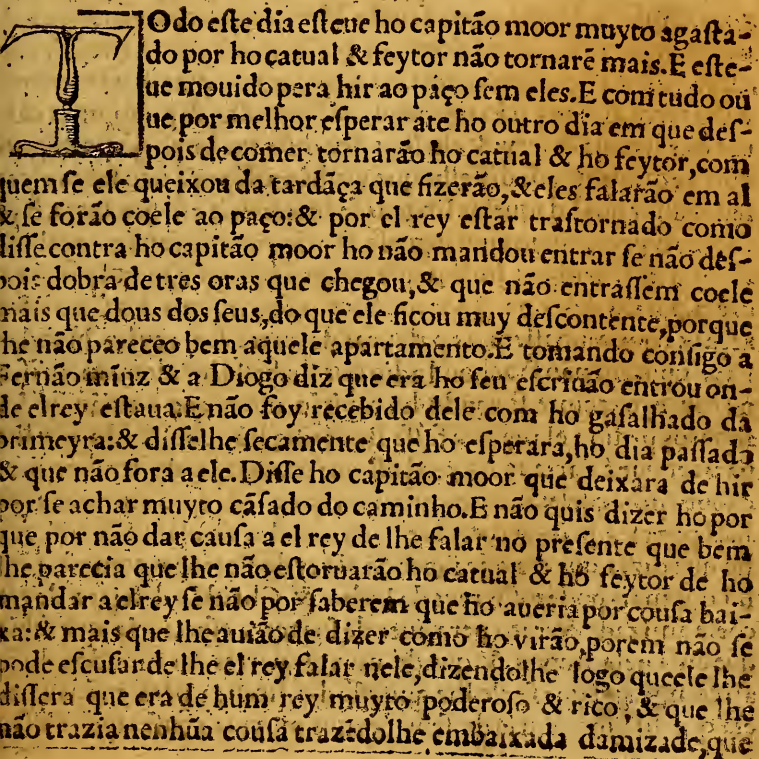 TOdo eſte dia eſteue ho capitão moor muyto agaſta-
do por ho catual & feytor não tornarẽ mais. E eſte-
ue mouido pera hir ao paço ſem eles. E com tudo ou
ue por melhor eſperar ate ho outro dia em que deſ-
pois de comer tornarão ho catual & ho feytor, com
quem ſe ele queixou da tardãça que fizerão, & eles falarão em al
& ſe forão coele ao paço: & por el rey eſtar traſtornado como
diſſe contra ho capitão moor ho não mandou entrar ſe não deſ-
pois dobra de tres oras que chegou, & que não entraſſem coele
mais que dous dos ſeus, do que ele ficou muy deſcontente, porque
lhe não pareceo bem aquele apartamento. E tomando conſigo a
Fernão mĩnz & a Diogo diz que era ho ſeu eſcriuão entrou on-
de elrey eſtaua. E não foy recebido dele com ho gaſalhado da
primeyra: & diſſelhe ſecamente que ho eſperara, ho dia paſſado
& que não fora a ele. Diſſe ho capitão moor que deixara de hir
por ſe achar muyto cãſado do caminho. E não quis dizer ho por
que, por não dar cauſa a el rey de lhe falar no preſente que bem
lhe parecia que lhe não eſtoruarão ho catual & ho feytor de ho
mandar a elrey ſe não por ſaberem que ho aueria por couſa bai-
xa: & mais que lhe auião de dizer como ho virão, porem não ſe
pode eſcuſar de lhe el rey falar nele, dizendolhe logo que ele lhe
diſſera que era de hum rey muyto poderoſo & rico, & que lhe
não trazia nenhũa couſa trazẽdolhe embaixada damizade, que